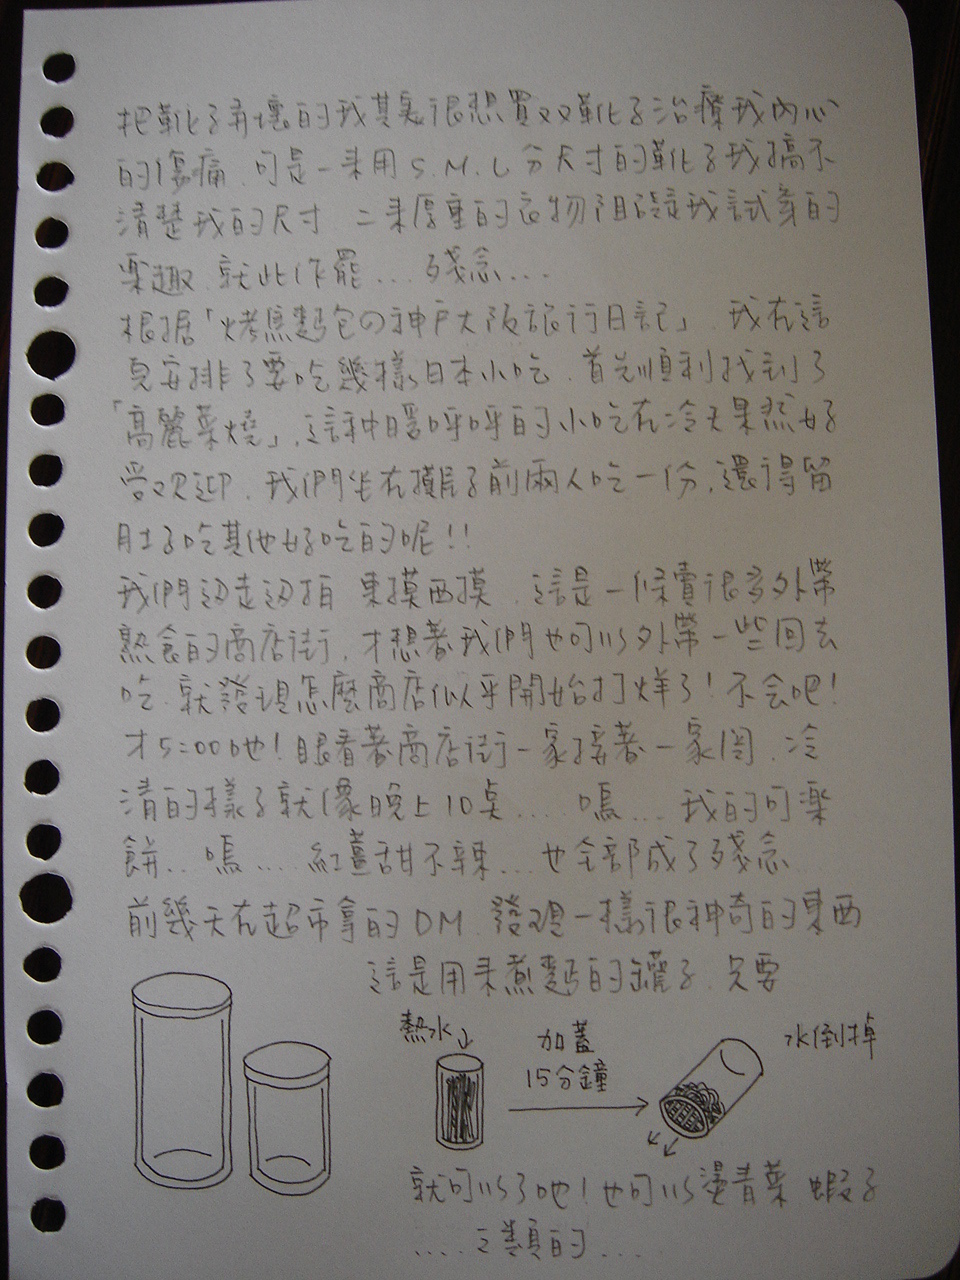 把靴子弄壞的我其實很想買双靴子治療我內心
的傷痛.可是一來用S.M.L分尺寸的靴子我搞不
清楚我的尺寸 二來厚重的衣物阻礙我試穿的
樂趣.就此作罷...殘念...
根據「烤焦麵包の神戶大阪旅行日記」.我在這
兒安排了要吃幾樣日本小吃.首先順利找到了
「高麗菜燒」.這种暖呼呼的小吃在冷天果然好
受欢迎.我們坐在攤子前兩人吃一份.還得留
肚子吃其他好吃的呢!!
我們边走边拍 東摸西摸.這是一條賣很多外帶
熟食的商店街.才想著我們也可以外帶一些回去
吃.就發現怎麼商店似乎開始打烊了!不会吧!
才5:00吔!眼看著商店街一家接著一家関.冷
清的樣子就像晚上10點.... 嗚... 我的可樂
餅.. 嗚... 紅薑甜不辣... 也全部成了殘念
前幾天在超市拿的DM.發現一樣很神奇的東西
這是用來煮麵的罐子.只要
熱水
加蓋
15分鐘
水倒掉
就可以了吔!也可以燙青菜 蝦子
....之類的....